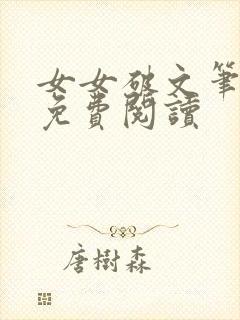 女女破文笔
免費閱讀
唐樹森